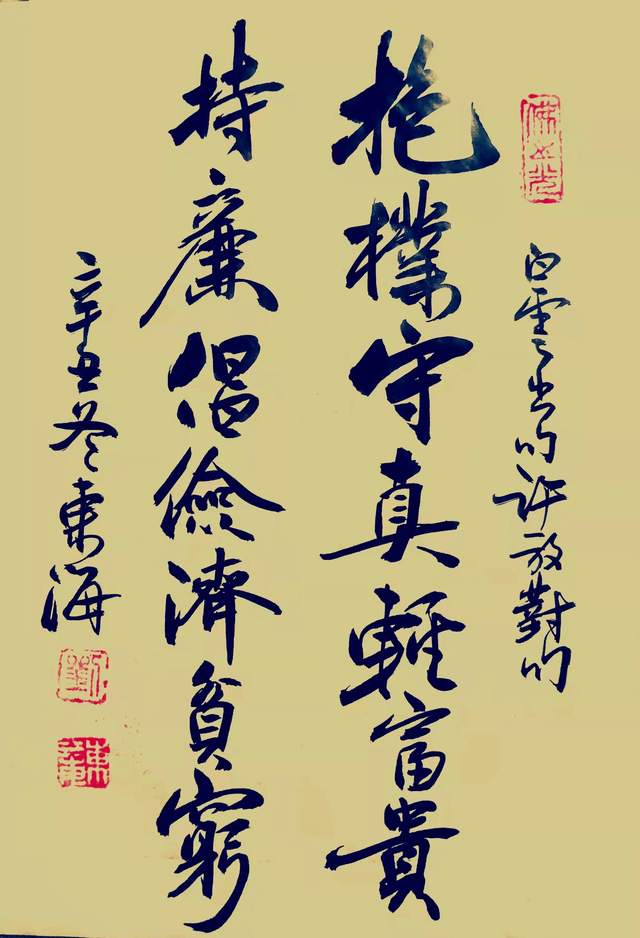 白雲出句許放對句
抱樸守真輕富貴
持廉倡儉濟貧窮
辛丑冬東海